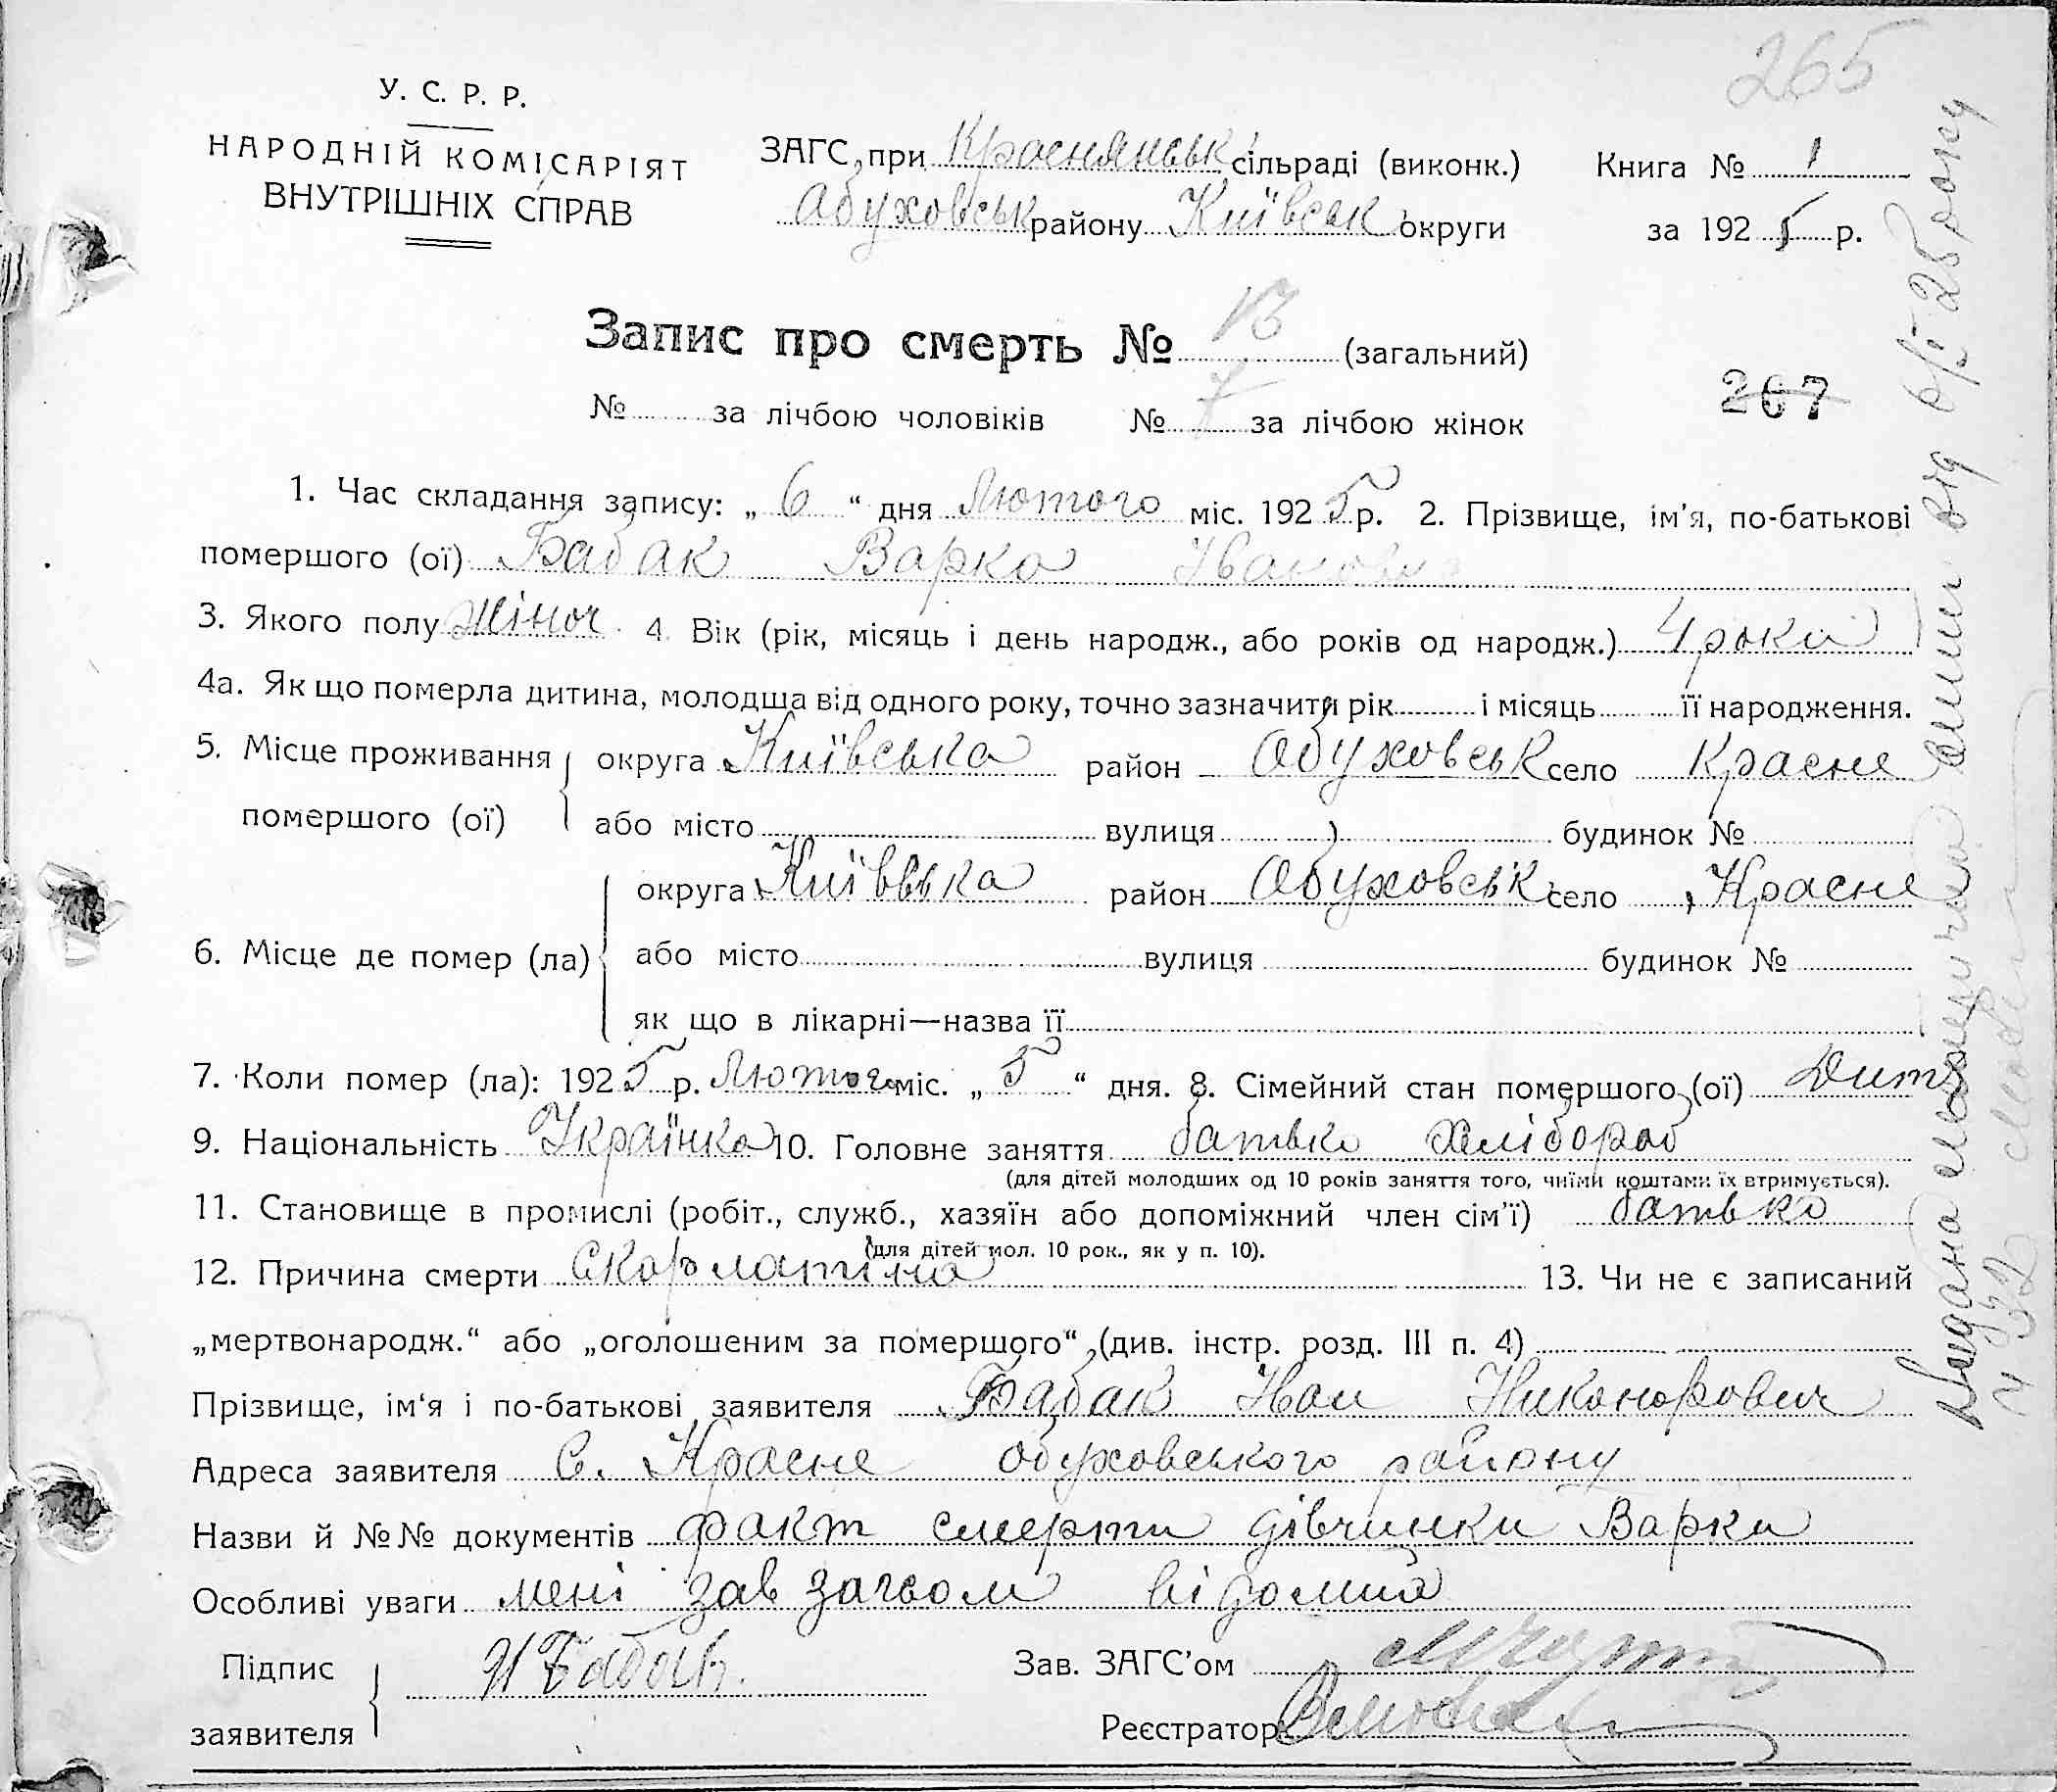 265
У. С. Р. Р.
НАРОДНІЙ КОМІСАРІЯТ
ВНУТРІШНІХ СПРАВ
ЗАГС при Краснянськ сільраді (виконк.)
Обуховськ району Київськ округи
Книга № 1
за 1925 р.
Запис про смерть № 13 (загальний)
№ за лічбою чоловіків № 7 за лічбою жінок
267
1. Час складання запису: „ 6 “ дня Лютого міс. 1925 р. 2. Прізвище, ім'я, по-батькові
помершого (ої) Бабак Варка Івановна
3. Якого полу жіноч 4. Вік (рік, місяць і день народж., або років од народж.) 4 роки
4а. Як що померла дитина, молодша від одного року, точно зазначити рік і місяць її народження.
5. Місце проживання округа Київська район Обуховськ село Красне
помершого (ої) або місто вулиця будинок №
округа Київська район Обуховськ село Красне
6. Місце де помер (ла) або місто вулиця будинок №
як що в лікарні—назва її
7. Коли помер (ла): 1925 р. Лютого міс. „ 5 “ дня. 8. Сімейний стан помершого (ої) Дит
9. Національність Українка 10. Головне заняття батько хлібороб
(для дітей молодших од 10 років заняття того, чиїми коштами їх втримується).
11. Становище в промислі (робіт., служб., хазяїн або допоміжний член сім'ї) батько
(для дітей мол. 10 рок., як у п. 10).
12. Причина смерти Скарлатина 13. Чи не є записаний
„мертвонародж.“ або „оголошеним за помершого“ (див. інстр. розд. III п. 4)
Прізвище, ім'я і по-батькові заявителя Бабак Иван Никонорович
Адреса заявителя С. Красне Обуховського району
Назви й №№ документів факт смерти дівчинки Варки
Особливі уваги мені завзагсом відомий
Підпис
заявителя И Бабак.
Зав. ЗАГС'ом
Реєстратор